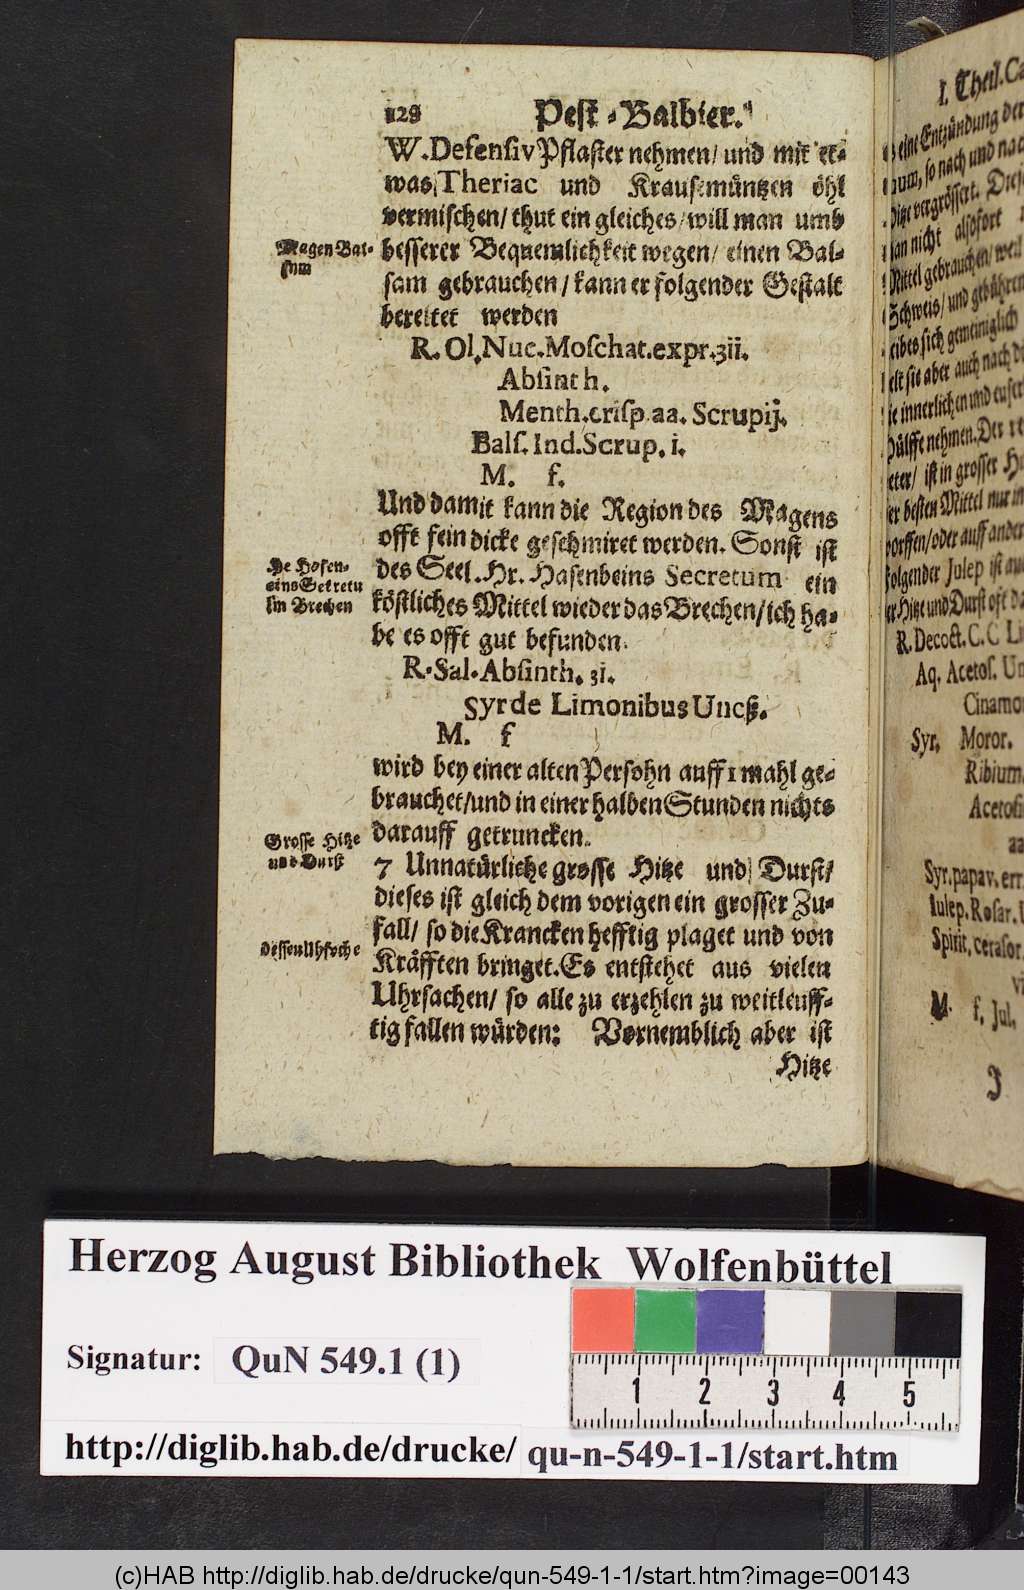 128 Pest-Balbier.
W. Defensiv Pflaster nehmen/ und mit et-
was Theriac und Krausemüntzen öhl
vermischen/ thut ein gleiches/ will man umb
Magen Bal-
sam
besserer Bequemlichkeit wegen/ einen Bal-
sam gebrauchen/ kann er folgender Gestalt
bereitet werden
R. Ol. Nuc. Moschat. expr. ʒii.
Absinth.
Menth. crisp aa. Scrupij.
Balſ. Ind. Scrup. i.
M. f.
Und damit kann die Region des Magens
offt fein dicke geschmiret werden. Sonst ist
He Hasen-
eins Secretu
im Brechen
des Seel. Hr. Hasenbeins Secretum ein
köstliches Mittel wieder das Brechen/ ich ha-
be es offt gut befunden.
R. Sal. Absinth. ʒi.
Syr de Limonibus Uncß.
M. f
wird bey einer alten Persohn auff 1 mahl ge-
brauchet/ und in einer halben Stunden nichts
darauff getruncken.
Grosse Hitze
und Durst
7 Unnatürliche grosse Hitze und Durst/
dieses ist gleich dem vorigen ein grosser Zu-
fall/ so die Krancken hefftig plaget und von
Kräfften bringet. Es entstehet aus vielen
Uhrsachen/ so alle zu erzehlen zu weitleuff-
tig fallen würden: Vornemblich aber ist
Hitze
I. Theil. Ca
eine Entzündung der
so nach und nac
vergrössert. Diese
nicht alsofort
Mittel gebrauchen/ weil
Schweis/ und gebühren
eibes sich gemeiniglich
sie aber auch nach d
innerlichen und euser
nehmen. Der
ist in grosser
besten Mittel nur
oder auff ander
folgender Julep ist au
Hitze und Durst oft da
R. Decoct. C. C L
Aq. Acetos.
Cinamo
Syr. Moror.
Ribium
Acetosi
aa
Syr. papav. err.
Iulep. Rosar.
Spirit. cerasor.
M. f. Jul.
J
Herzog August Bibliothek Wolfenbüttel
Signatur: QuN 549.1 (1)
1 2 3 4 5
http://diglib.hab.de/drucke/ qu-n-549-1-1/start.htm
(c)HAB http://diglib.hab.de/drucke/qun-549-1-1/start.htm?image=00143